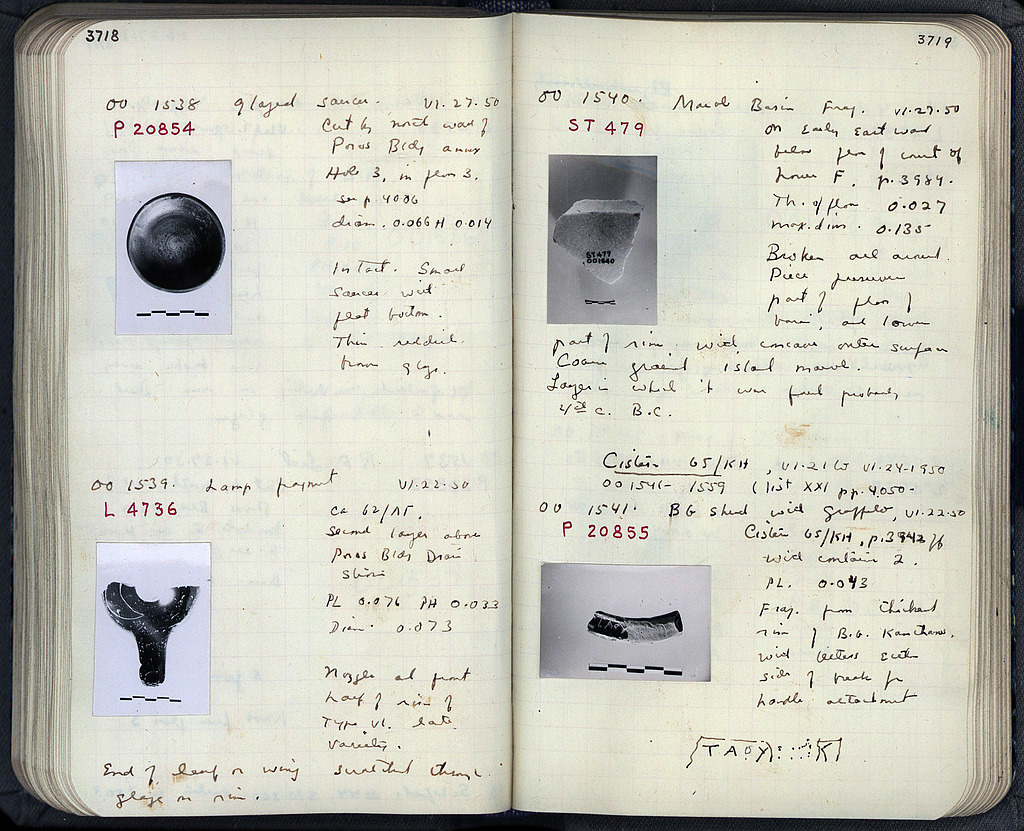 3718
OO 1538 glazed saucer. VI.27.50
P 20854
Cut by north wall of
Poros Bldg annex
Hole 3, in floor 3.
see p. 4006
diam. 0.066 H 0.014
Intact. Small
saucer with
flat bottom.
Thin reddish
brown glaze.
OO 1539. Lamp fragment VI.22.50
L 4736
ca 62/ΛΓ.
second layer above
Poros Bldg Drain
PL 0.076 PH 0.033
Diam. 0.073
Nozzle and front
half of rim of
Type VI. late
variety.
End of leaf or wing scratched through
glaze on rim.
3719
OO 1540. Marble Basin Frag. VI.27.50
ST 479
On Early East ward
below floor of court of
house F. p. 3984.
Th. of floor 0.027
max. dim. 0.135
Broken all around.
Piece preserves
part of floor of
basin, and lower
part of rim with concave outer surface
Coarse grained island marble.
Layer in which it was found probably
4th c. B.C.
ST 479
OO1540
Cistern 65/KH, VI.21 to VI.24-1950
OO 1541- 1559 (list XXI pp. 4050-
OO 1541. BG sherd with graffito, VI.22.50
P 20855
Cistern 65/KH, p. 3942 ff
PL. 0.043
Frag. from thickened
rim of B.G. Kantharos.
with letters either
side of break for
handle attachment
[ΤΑΟΧ]:...:[Κ]